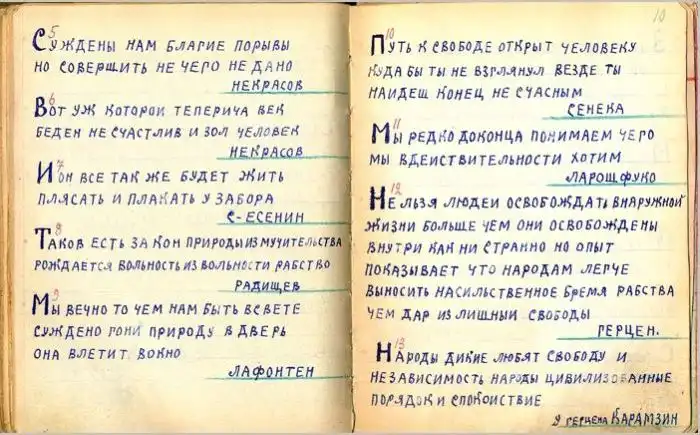 5
Суждены нам благие порывы
но совершить не чего не дано
Некрасов
6
Вот уж которои теперича век
беден не счастлив и зол человек
Некрасов
7
И он все так же будет жить
плясать и плакать у забора
С-Есенин
8
Таков есть за кон природы из мучительства
рождается вольность из вольности рабство
Радищев
9
Мы вечно то чем нам быть в свете
суждено гони природу в дверь
она влетит вокно
Лафонтен
10
10
Путь к свободе открыт человеку
куда бы ты не взглянул везде ты
наидеш конец не счасным
Сенека
11
Мы редко доконца понимаем чего
мы вдеиствительности хотим
Ларошфуко
12
Нельзя людеи освобождать внаружнои
жизни больше чем они освобождены
внутри как ни странно но опыт
показывает что народам легче
выносить насильственное бремя рабства
чем дар излишныи свободы
Герцен.
13
Народы дикие любят свободу и
независимость народы цивилизованные
порядок и спокоиствие
у герцена Карамзин